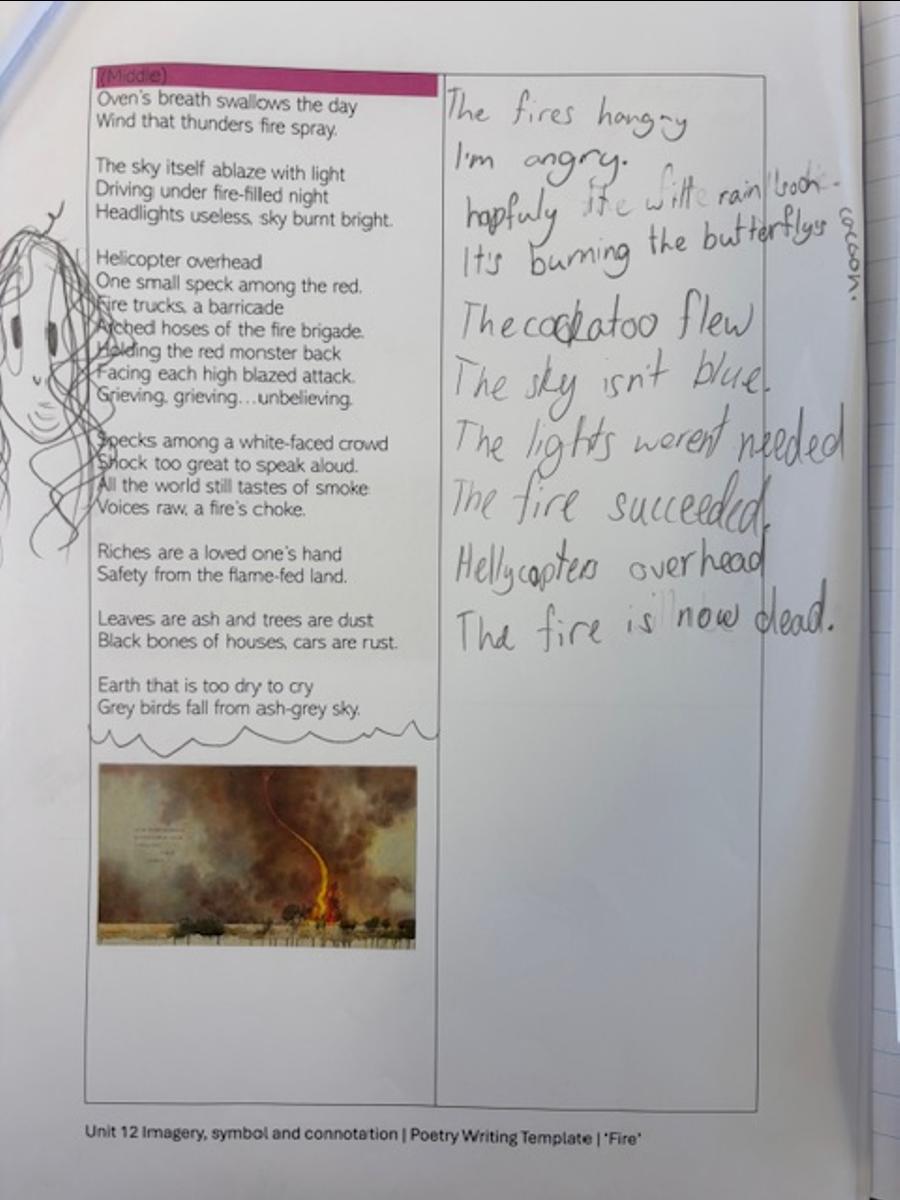 (Middle)
Oven's breath swallows the day
Wind that thunders fire spray.
The sky itself ablaze with light
Driving under fire-filled night
Headlights useless, sky burnt bright.
Helicopter overhead
One small speck among the red.
Fire trucks, a barricade
Arched hoses of the fire brigade.
Holding the red monster back
Facing each high blazed attack.
Grieving, grieving...unbelieving.
Specks among a white-faced crowd
Shock too great to speak aloud.
All the world still tastes of smoke
Voices raw, a fire's choke.
Riches are a loved one's hand
Safety from the flame-fed land.
Leaves are ash and trees are dust
Black bones of houses, cars are rust.
Earth that is too dry to cry
Grey birds fall from ash-grey sky.
The fires hangry
I'm angry.
hopfuly will rain soon.
It's burning the butterflys cocoon.
The cockatoo flew
The sky isn't blue.
The lights werent needed
The fire succeeded.
Hellycopters overhead
The fire is now dead.
Unit 12 Imagery, symbol and connotation | Poetry Writing Template | 'Fire'